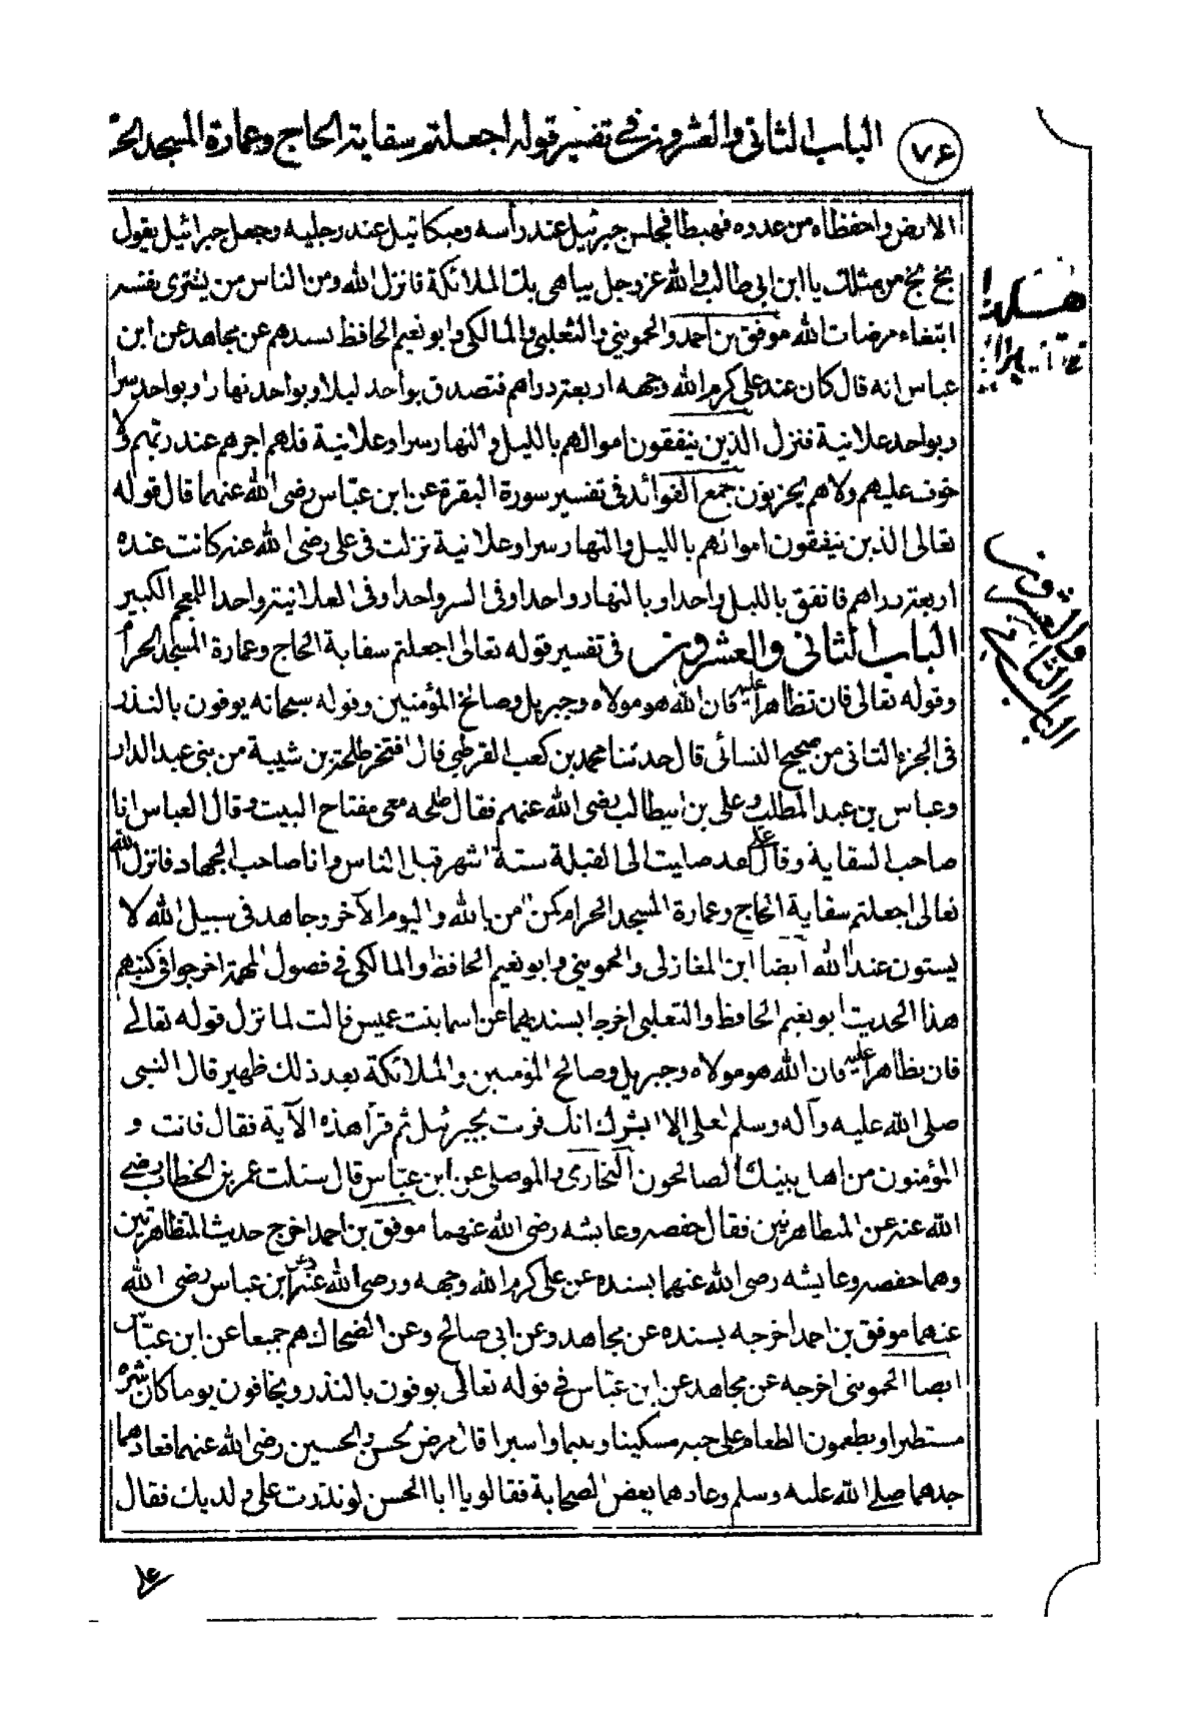 الباب الثاني والعشرون في تفسير قوله اجعلتم سقاية الحاج وعمارة المسجد الحر
٧٤
الارض واحفظاه من عدوه فهبطا فجلس جبرئيل عند رأسه وميكائيل عند رجليه وجعل جبرائيل يقول
بخ بخ من مثلك يا ابن ابي طالب والله عز وجل يباهى بك الملائكة فانزل الله ومن الناس من يشترى نفسه
ابتغاء مرضات الله موفق بن احمد والحمويني والثعلبي والمالكي وابو نعيم الحافظ بسندهم عن مجاهد عن ابن
عباس انه قال كان عند على كرم الله وجهه اربعة دراهم فتصدق بواحد ليلا وبواحد نهارا وبواحد سرا
وبواحد علانية فنزل الذين ينفقون اموالهم بالليل والنهار سرا وعلانية فلهم اجرهم عند ربهم ولا
خوف عليهم ولا هم يحزنون جمع الفوائد في تفسير سورة البقرة عن ابن عباس رضى الله عنهما قال قوله
تعالى الذين ينفقون اموالهم بالليل والنهار سرا وعلانية نزلت فى على رضى الله عنه كانت عنده
اربعة دراهم فانفق بالليل واحدا وبالنهار واحدا وفى السر واحدا وفى العلانية واحدا للمعجم الكبير
الباب الثاني والعشرون في تفسير قوله تعالى اجعلتم سقاية الحاج وعمارة المسجد الحرام
وقوله تعالى فان تظاهرا عليه فان الله هو مولاه وجبريل وصالح المؤمنين وقوله سبحانه يوفون بالنذر
فى الجزء الثانى من صحيح النسائى قال حدثنا محمد بن كعب القرظي قال افتخر طلحة بن شيبة من بنى عبد الدار
وعباس بن عبد المطلب وعلى بن ابيطالب رضى الله عنهم فقال طلحه معى مفتاح البيت وقال العباس انا
صاحب السقاية وقال على لقد صليت الى القبلة ستة اشهر قبل الناس وانا صاحب الجهاد فانزل الله
تعالى اجعلتم سقاية الحاج وعمارة المسجد الحرام كمن امن بالله واليوم الآخر وجاهد فى سبيل الله لا
يستون عند الله ايضا ابن المغازلى والحمويني وابو نعيم الحافظ والمالكى في فصول المهمة اخرجوا فى كتبهم
هذا الحديث ابو نعيم الحافظ والثعلبى اخرجا بسنديهما عن اسما بنت عميس قالت لما نزل قوله تعالى
فان تظاهرا عليه فان الله هو مولاه وجبريل وصالح المؤمنين والملائكة بعد ذلك ظهير قال النبى
صلى الله عليه وآله وسلم لعلى الا ابشرك انك قرنت بجبرئيل ثم قرأ هذه الآية فقال فانت و
المؤمنون من اهل بيتك الصالحون البخارى والموصلى عن ابن عباس قال سئلت عمر بن الخطاب رضي
الله عنه عن المتظاهرتين فقال حفصه وعايشه رضى الله عنهما موفق بن احمد اخرج حديث المتظاهرتين
وهما حفصه وعايشه رضى الله عنهما بسنده عن على كرم الله وجهه ورضى الله عنه وعن ابن عباس رضى الله
عنهما موفق بن احمد اخرجه بسنده عن مجاهد وعن ابى صالح وعن الضحاك هم جميعا عن ابن عباس
ايضا الحموينى اخرجه عن مجاهد عن ابن عباس في قوله تعالى يوفون بالنذر ويخافون يوما كان شره
مستطيرا ويطعمون الطعام على حبه مسكينا ويتيما واسيرا قال مرض الحسن والحسين رضى الله عنهما فعادهما
جدهما صلى الله عليه وسلم وعادهما بعض الصحابة فقالوا يا ابا الحسن لو نذرت على ولديك فقال
الباب الثانى والعشرون
على